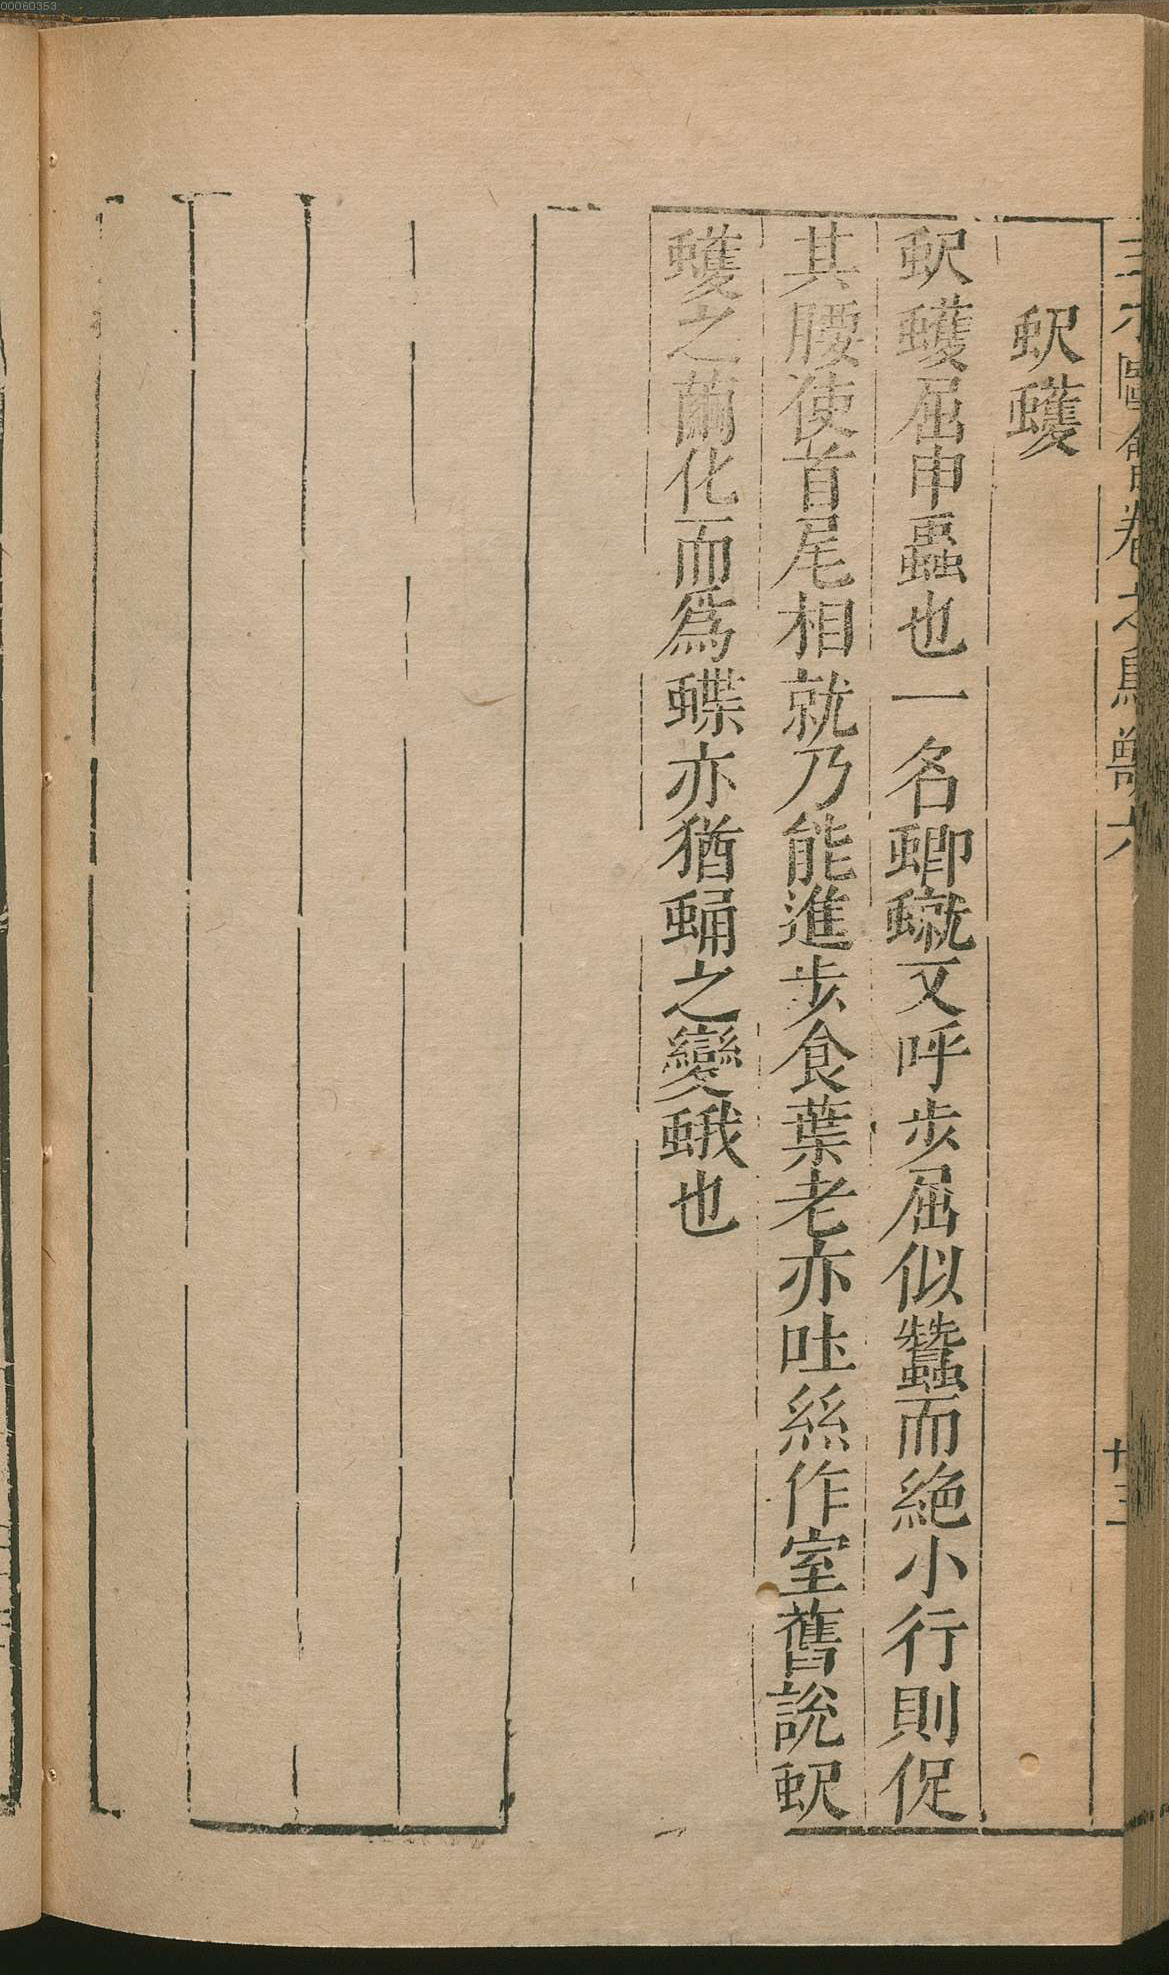 00060353
三才圖會卷之鳥獸六
十三
蚇蠖
蚇蠖屈申蟲也一名蝍𧑙又呼步屈似蠶而絶小行則促
其腰使首尾相就乃能進步食葉老亦吐絲作室舊說蚇
蠖之繭化而爲蝶亦猶蛹之變蛾也